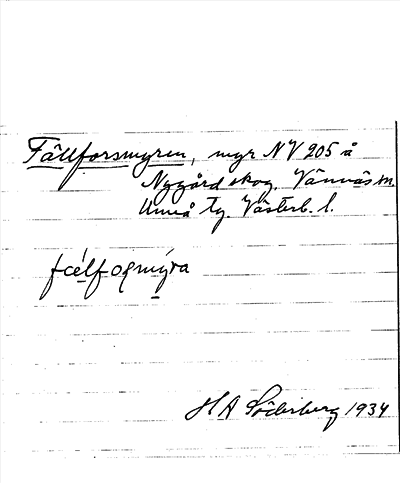 Fällforsmyren, myr NV 205 å
Nygård skog. Vännäs sn.
Umeå tg. Västerb. l.
fælfosmýra
H A Söderberg 1934